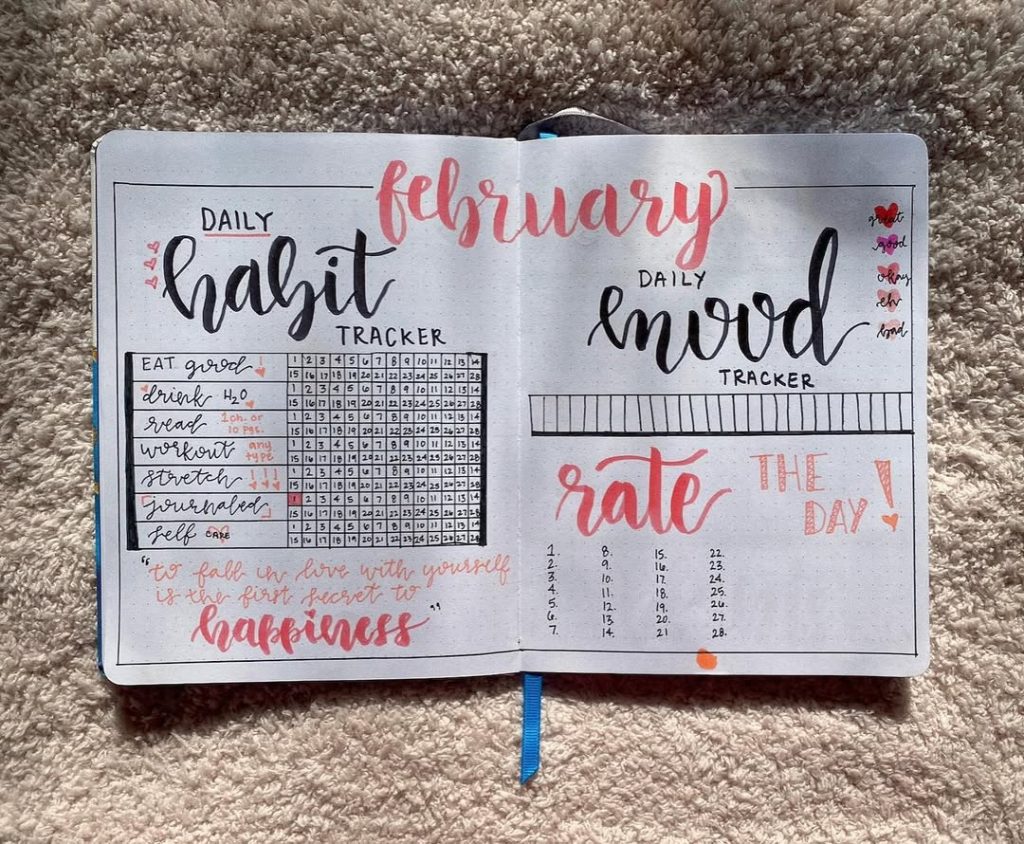 february
DAILY
habit
TRACKER
EAT good !
1 2 3 4 5 6 7 8 9 10 11 12 13 14
15 16 17 18 19 20 21 22 23 24 25 26 27 28
drink H2O
1 2 3 4 5 6 7 8 9 10 11 12 13 14
15 16 17 18 19 20 21 22 23 24 25 26 27 28
read 1 ch. or
10 pgs.
1 2 3 4 5 6 7 8 9 10 11 12 13 14
15 16 17 18 19 20 21 22 23 24 25 26 27 28
workout any
type
1 2 3 4 5 6 7 8 9 10 11 12 13 14
15 16 17 18 19 20 21 22 23 24 25 26 27 28
stretch
1 2 3 4 5 6 7 8 9 10 11 12 13 14
15 16 17 18 19 20 21 22 23 24 25 26 27 28
journaled
1 2 3 4 5 6 7 8 9 10 11 12 13 14
15 16 17 18 19 20 21 22 23 24 25 26 27 28
self CARE
1 2 3 4 5 6 7 8 9 10 11 12 13 14
15 16 17 18 19 20 21 22 23 24 25 26 27 28
"to fall in love with yourself
is the first secret to
happiness"
great
good
okay
eh
bad
DAILY
mood
TRACKER
rate THE
DAY!
1. 8. 15. 22.
2. 9. 16. 23.
3. 10. 17. 24.
4. 11. 18. 25.
5. 12. 19. 26.
6. 13. 20. 27.
7. 14. 21 28.